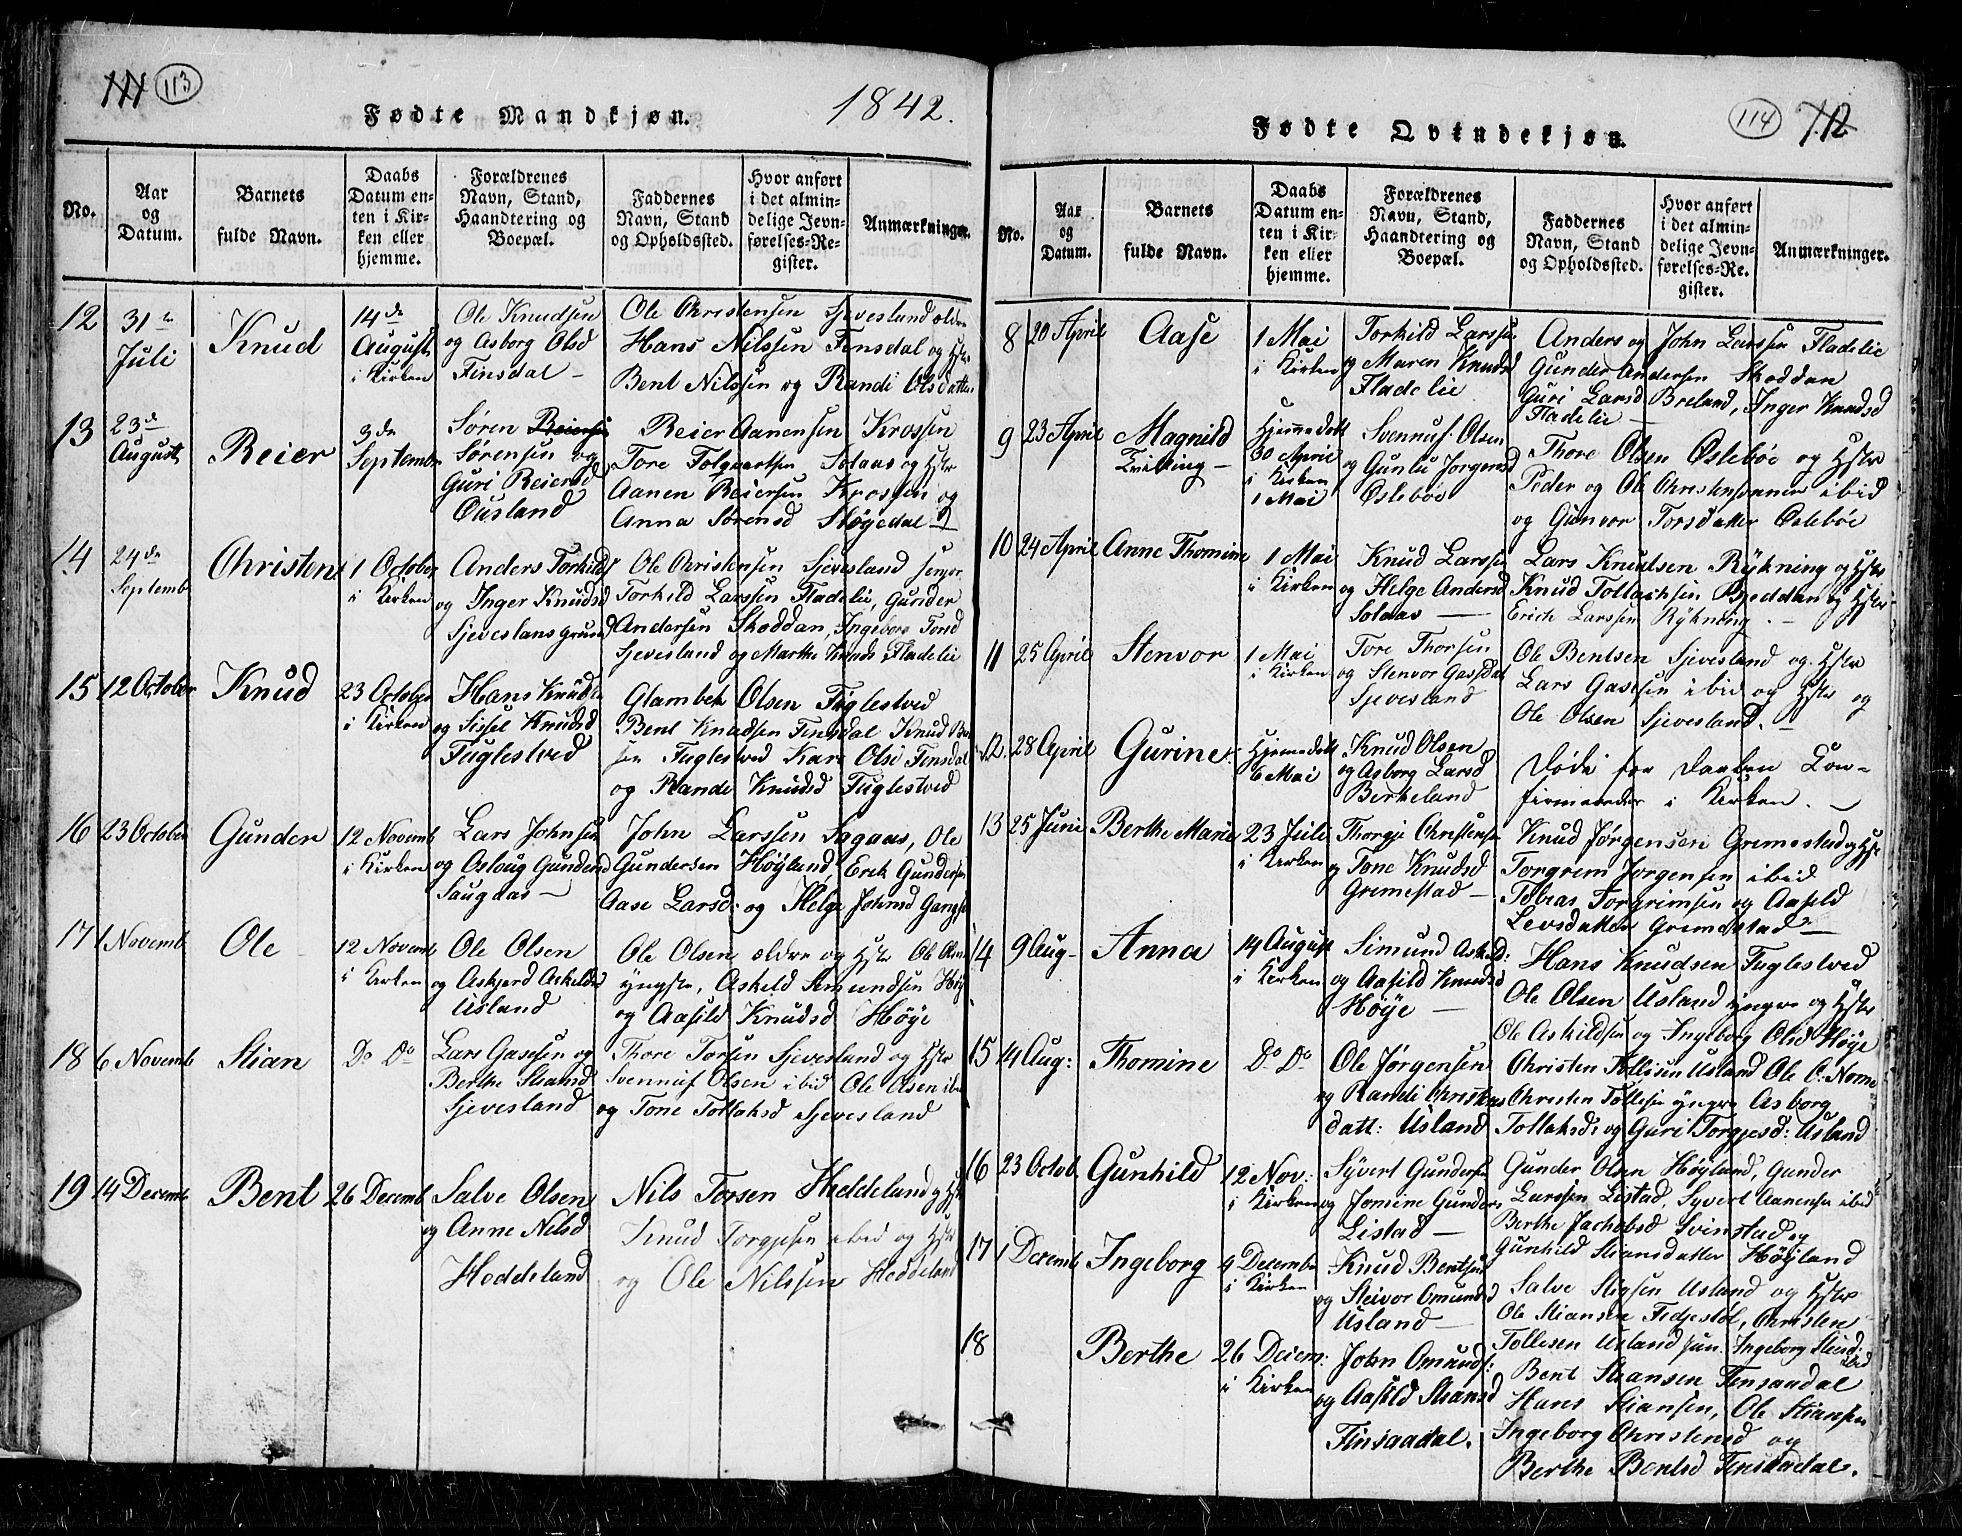 111 113
Fødte Mandkjøn. 1842.
No.
Aar og Datum.
Barnets fulde Navn.
Daabs Datum enten i Kirken eller hjemme.
Forældrenes Navn, Stand, Haandtering og Boepæl.
Faddernes Navn, Stand og Opholdssted.
Hvor anført i det almindelige Jevnførelses-Register.
Anmærkninger.
12 31te Juli
Knud
14de August i Kirken
Ole Knudsen
og Asborg Olsd
Finsdal
Ole Christensen Sjevesland ældre
Hans Nilssen Finsdal og Hstr
Bent Nilssen og Randi Olsdatter
13 23de August
Reier
3de Septembr
Søren
Sørensen og
Guri Reiersd
Ousland
Reier Aanensen Krossen
Tore Folqvartsen Solaas og Hstr
Aanen Reiersen Krossen og
Anna Sørensd Støgedal
14 24de Septemb
Christen
1 October i Kirken
Anders Torkilds
og Inger Knudsd
Sjeveslans grund
Ole Christensen Sjevesland senjor
Torkild Larssen Fladelie, Gunder
Andersen Skoddan, Ingeborg Torsd
Sjevesland og Marthe Knuds Fladelie
15 12 October
Knud
23 October i Kirken
Hans Knuds
og Sissel Knudsd
Fuglestved
Glambek Olsen Fuglestved
Bent Knudsen Finsdal Knud Ben
sen Fuglestved Kari Olsd Finsdal
og Rande Knudsd Fuglestved
16 23 October
Gunder
12 Novemb i Kirken
Lars Johnsen
og Aslaug Gundersd
Saugaas
John Larssen Sagaas, Ole
Gundersen Høyland, Erik Gundersen
Aase Larsd: og Helge Johnsd
17 1 Novemb
Ole
12 Novemb i Kirken
Ole Olsen
og Askjerd Askildsd
Usland
Ole Olsen ældre og Hstr Ole Olsen
yngste, Askild Simundsen Høy
og Aasild Knudsd Høye
18 6 Novemb
Stian
Do Do
Lars Gasesen og
Berthe Stiansd
Sjevesland
Thore Torsen Sjevesland og Hstr
Svennuf Olsen ibid Ole Olsen ibid
og Tone Tollaksd Sjevesland
19 14 Decemb
Bent
26 Decemb
Salve Olsen
og Anne Nilsd
Heddeland
Nils Torsen Heddeland og Hstr
Knud Torgjesen ibid og Hstr
og Ole Nilssen Heddeland
Fødte Qvindekjøn. 114 112
No.
Aar og Datum.
Barnets fulde Navn.
Daabs Datum enten i Kirken eller hjemme.
Forældrenes Navn, Stand, Haandtering og Boepæl.
Faddernes Navn, Stand og Opholdssted.
Hvor anført i det almindelige Jevnførelses-Register.
Anmærkninger.
8 20 April
Aase
1 Mai i Kirken
Torkild Larssen
og Maren Knudsd
Fladelie
Anders og John Larssen Fladelie
Gunder Andersen Skoddan
Guri Larsd Breland, Inger Knudsd
Fladelie
9 23 April
Magnild
Tvilling
Hjemmedøbt
30 April
i Kirken
1 Mai
Svennuf Olsen
og Gunlu Jorgensd
Oslebøe
Thore Olsen Oslebøe og Hstr
Peder og Ole Christenssønner ibid
og Gunvor Torsdatter Oslebøe
10 24 April
Anne Thomine
1 Mai i Kirken
Knud Larssen
og Helge Andersd
Solaas
Lars Knudsen Rykning og Hstr
Knud Tollachsen Bjeddan og Hstr
Erich Larssen Rykning.
11 25 April
Stenvor
1 Mai i Kirken
Tore Thorsen
og Stenvor Gassdat
Sjevesland
Ole Bentsen Sjevesland og Hstr
Lars Gasesen ibid og Hstr og
Ole Olsen Sjevesland.
12. 28 April
Gurine
Hjemmedøbt
6 Mai
Knud Olsen
og Asborg Larsd
Birkeland
Døde før Daaben Con-
firmereder i Kirken.
13 25 Juni
Berthe Marie
23 Juli i Kirken
Thorgje Christensen
og Tone Knudsd
Gremestad
Knud Jørgensen Gremestad og Hstr
Torgrem Jorgensen ibid
Tobias Torgrimsen og Aasild
Levsdatter Gremestad
14 9 Aug
Anna
14 August i Kirken
Simund Askild:
og Aasild Knudsd
Høye
Hans Knudsen Fuglestved
Ole Olsen Usland yngre og Hstr
Ole Askildsen og Ingeborg Olsd Høye
15 14 Aug:
Thomine
Do Do
Ole Jørgensen
og Ramdi Christens
datt: Usland
Christen Tollisen Usland Ole C: Nome
Christen Tollisen yngre Asborg
Tollaksd: og Guri Torgjesd: Usland
16 23 Octob
Gunhild
12 Nov: i Kirken
Syvert Gundersen
og Jomine Gunders
Listad
Gunder Olsen Høyland, Gunder
Larssen Listad, Syvert Aanensen ibid
Berthe Jachobsd Svinstad og
Gunhild Stiansdatter Høyland
17 1 Decemb
Ingeborg
4 Decembr i Kirken
Knud Bentsen
og Steivor Omundsd
Usland
Salve Stigsen Usland og Hstr
Ole Stiansen Fidjestøl, Christen
Tollisen Usland jun. Ingeborg Stiasd: ibid
18
Berthe
26 Decem: i Kirken
John Omunds:
og Aasild Stiansd
Finsaadal.
Bent Stiansen Finsaadal
Hans Stiansen, Ole Stiansen
Ingeborg Christensd og
Berthe Bentsd Finsaadal.